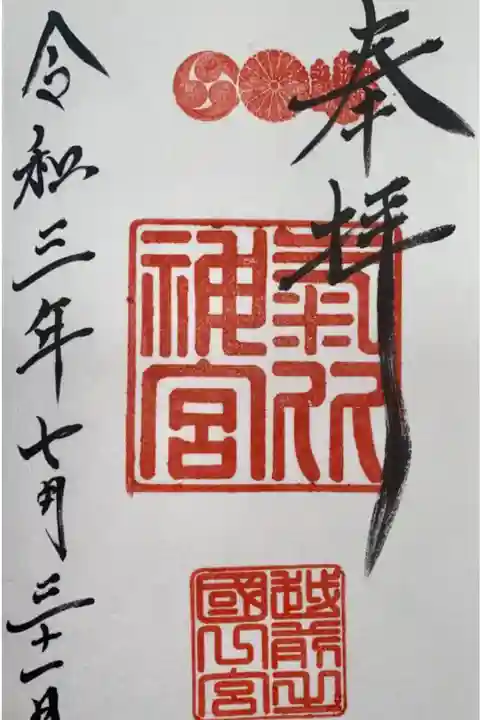 奉拝
氣比
神宮
越前之
國一宮
令和三年七月三十一日